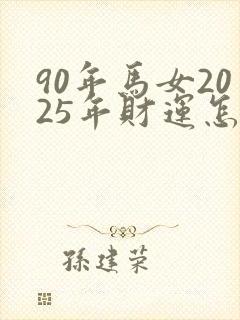 90年馬女20
25年財運怎
孫建荣